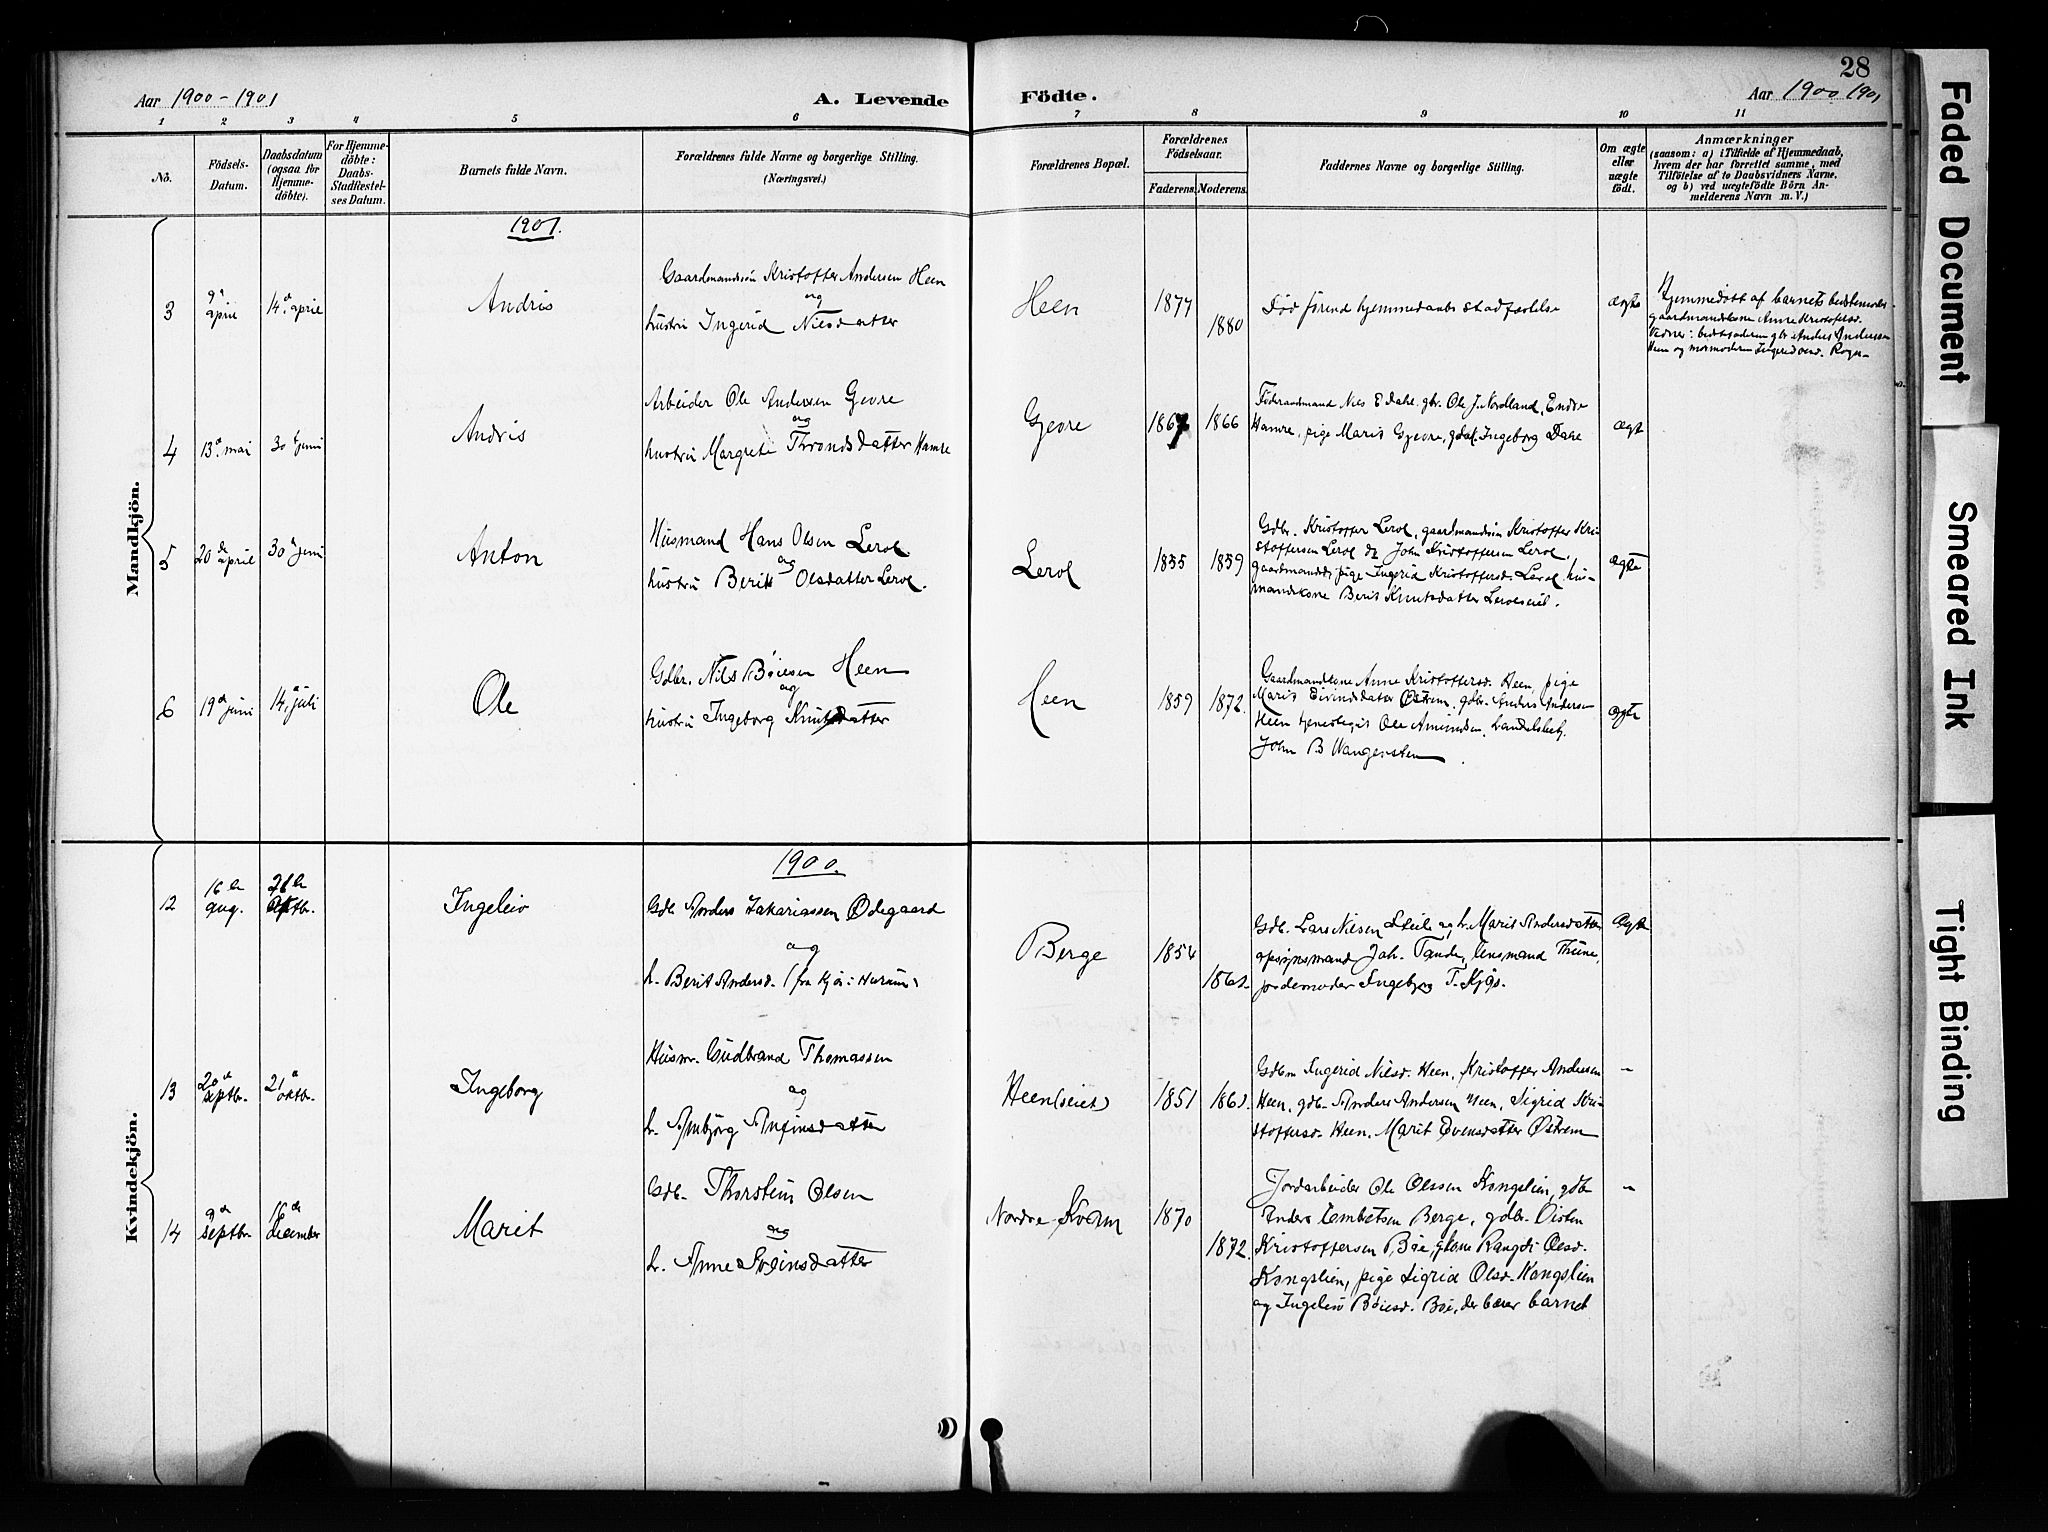 28
Aar 1900-1901
A. Levende Födte.
Aar 1900 1901
1 2 3 4 5 6 7 8 9 10 11
No.
Födsels-Datum.
Daabsdatum (ogsaa for Hjemme-döbte).
For Hjemme-döbte: Daabs-Stadfæstel-ses Datum.
Barnets fulde Navn.
Forældrenes fulde Navne og borgerlige Stilling.
(Næringsvei.)
Forældrenes Bopæl.
Forældrenes Födselsaar.
Faderens. Moderens.
Faddernes Navne og borgerlige Stilling.
Om ægte eller uægte födt.
Anmærkninger
(saasom: a) i Tilfælde af Hjemmedaab,
hvem der har forrettet samme, med
Tilföielse af to Daabsvidners Navne,
og b) ved uægtefödte Börn An-
melderens Navn m. V.)
Mandkjön.
1901.
3 9de april 14de april Andris
Gaardmandssön Kristoffer Andersen Heen
og
hustru Ingerid Nilsdatter
Heen 1877 1880
Död förend hjemmedaabs stadfæstelse
ægte
Hjemmedöbt af barnets bedstemoder
gaardmandskone Anne Kristoffersd.
Vidner: bedstefaderen gbr Anders Andersen
Heen og mormoderen Ingerid
4 13de mai 30te juni Andris
Arbeider Ole Andersen Gevre
og
hustru Margrete Throndsdatter Hamre
Gevre 1867 1866
Föderaadmand Nils E Dahl. gbr. Ole J. Nordland, Endre
Hamre, pige Marit Gjevre, Ingeborg Dahl
ægt
5 20de april 30te juni Anton
Husmand Hans Olsen Lerol
og
hustru Berit Olsdatter Lerol.
Lerol 1855 1859
Gdbr. Kristoffer Lerol, gaardmandssön Kristoffer Kri-
stoffersen Lerol og John Kristoffersen Lerol,
gaardmandspige Ingerid Kristoffersd. Lerol, hus-
mandskone Berit Knutsdatter Leroleiet.
ægte
6 19de juni 14de juli Ole
Gdbr. Nils Böiesen Heen
og
hustru Ingeborg Knutsdatter
Heen 1859 1872.
Gaardmandskone Anne Kristoffersd. Heen, pige
Marit Eivindsdater Östrem, gdbr. Anders Andersen
Heen tjenestegut Ole Amundsen, handelsbetj.
John B Wangensten.
ægte
Kvindekjön.
1900.
12 16de aug. Ingeleiv
Gdb Anders Zakariassen Ödegaard
og
h. Berit Andersd. (fra Kjös i Hurum)
Berge 1854 1861.
Gdb. Lars Nilsen Steile og h. Marit Andersdatter
opsynsmand Joh. Tande, lensmand Thune,
jordemoder Ingebjørg T. Kjös.
Ægte
13 20de septbr. 21de oktbr. Ingeborg
Husm. Gudbrand Thomassen
og
h. Anbjörg Anfinsdatter
Heen (eiet) 1851 1861.
Gdbm Ingerid Nilsd. Heen, Kristoffer Andersen
Heen, gdb. Anders Andersen Heen, Sigrid Kri-
stoffersd. Heen. Marit Evensdatter Östrem
–
14 9de septbr. 16de december Marit
Gdb. Thorstein Olsen
og
h. Anne Sveinsdatter
Nordre Kvam 1870 1872.
Jordarbeider Ole Olssen Kongslien, gdb
Anders Embretsen Berge, gdbr. Oisten
Kristoffersen Böe, gkone Rangdi Olsd.
Kongslien, pige Sigrid Olsd. Kongslien
og Ingeleiv Böiesd. Böe, der bærer barnet
–
Faded Document
Smeared Ink
Tight Binding